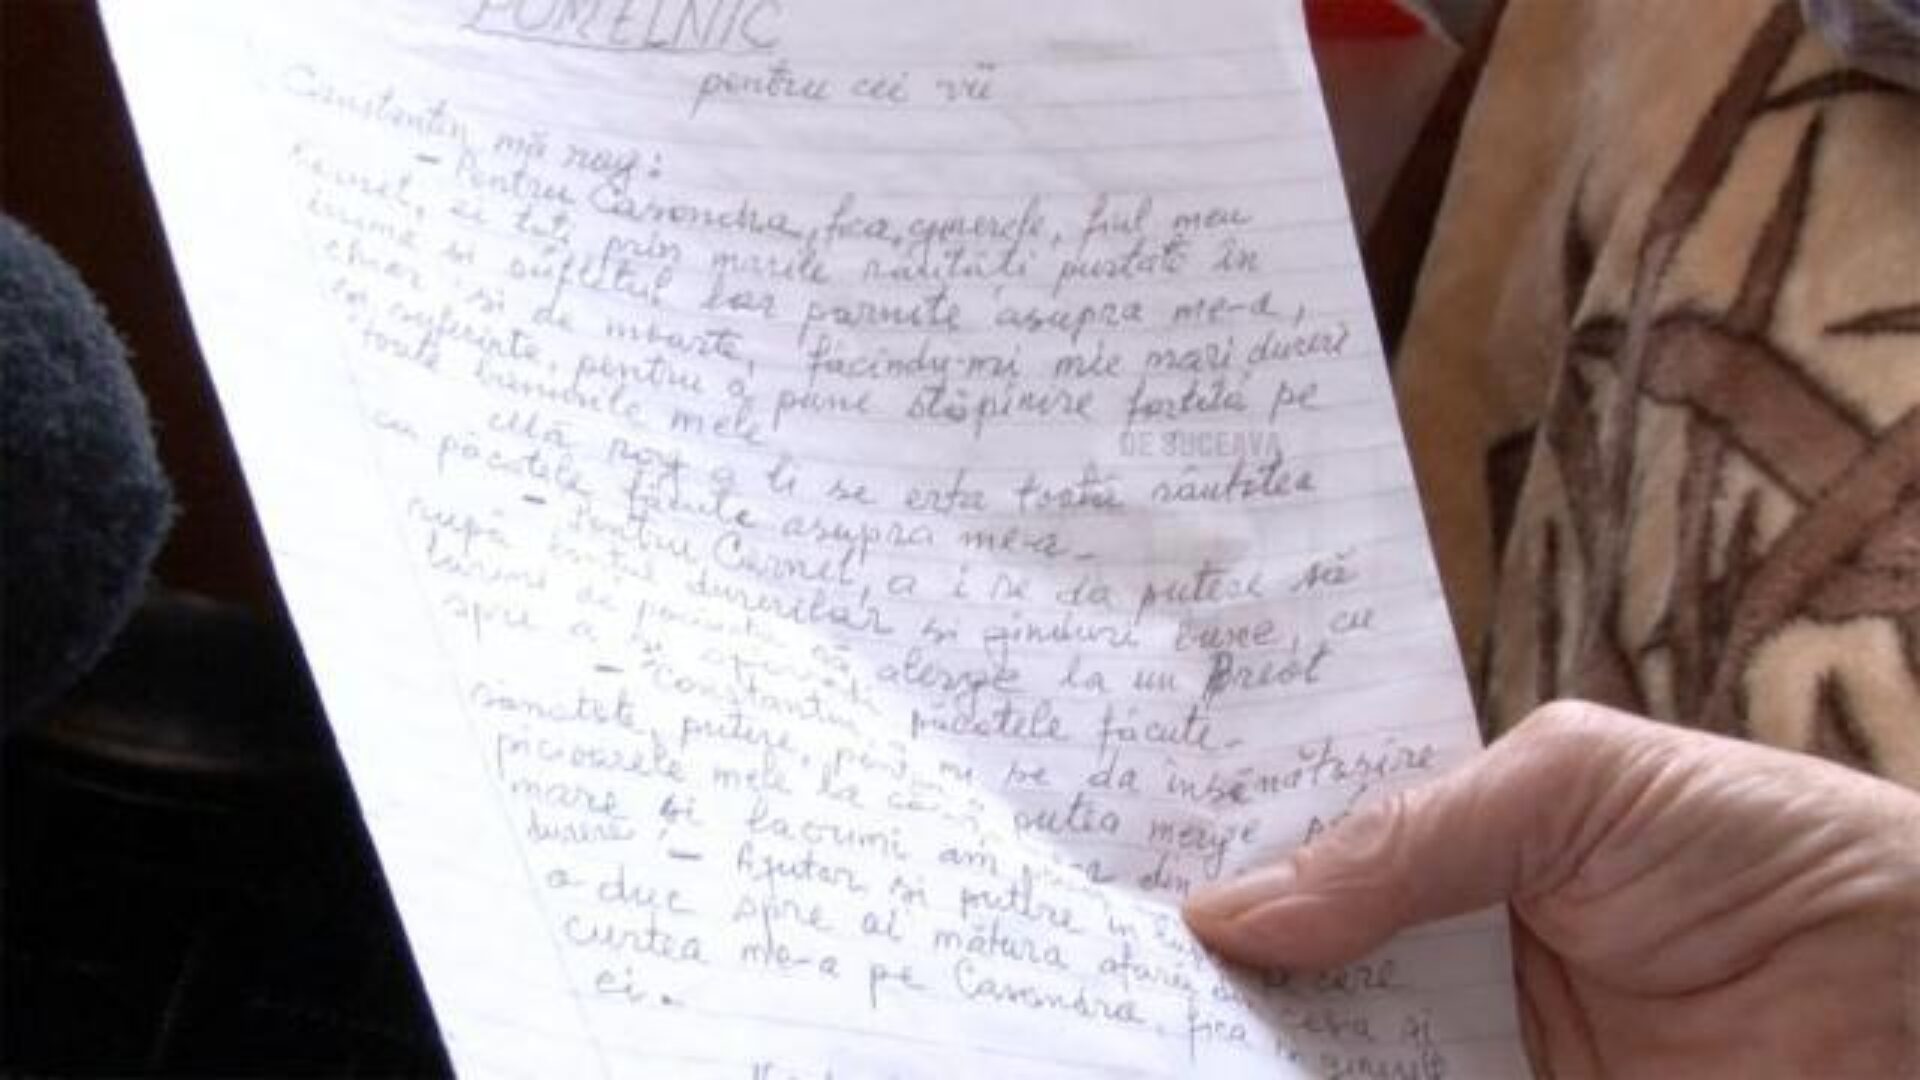 POMELNIC
pentru cei vii
Constantin mă rog:
- Pentru Casandra, fica, ginerele, fiul meu
Cornel, ei toți prin marile răutăți purtate în
inima și sufletul lor pornite asupra me-a,
chiar și de moarte, făcîndu-mi mie mari dureri
în suferințe, pentru a pune stăpînire forțită pe
toate bunurile mele
Mă rog a li se erta toată răutatea
cu păcatele făcute asupra me-a -
- Pentru Cornel, a i se da putere să
rupă lanțul durerilor și gînduri bune, cu
lacrimi de pocăință să alerge la un Preot
spre a păcatele făcute -
- Constantin mi se da însănătoșire
sănătate, putere, putea merge
picioarele mele la
mare și lacrimi am din
durere! - Ajutor și putere în
a duc spre ai mătura afară care
curtea me-a pe Casandra, fica ginerele
ei.
DE SUCEAVA